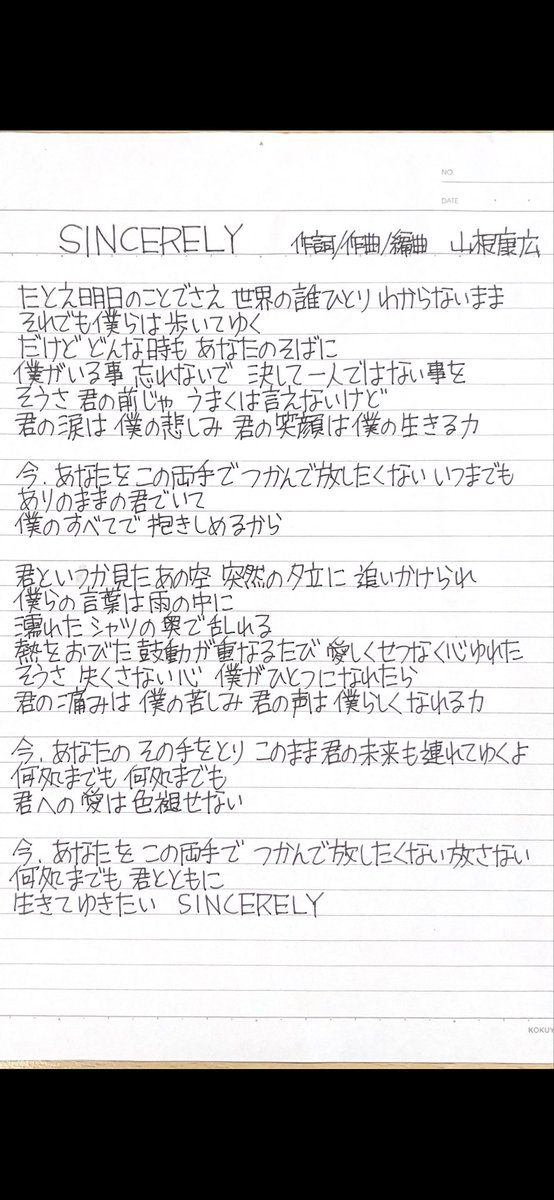 NO.
DATE
SINCERELY 作詞/作曲/編曲 山根康広
たとえ明日のことでさえ 世界の誰ひとり わからないまま
それでも僕らは 歩いてゆく
だけど どんな時も あなたのそばに
僕がいる事 忘れないで 決して一人ではない事を
そうさ 君の前じゃ うまくは言えないけど
君の涙は 僕の悲しみ 君の笑顔は僕の生きる力
今、あなたを この両手で つかんで放したくない いつまでも
ありのままの君でいて
僕のすべてで 抱きしめるから
君といつか見た あの空 突然の夕立に 追いかけられ
僕らの言葉は 雨の中に
濡れた シャツの奥で乱れる
熱をおびた 鼓動が重なるたび 愛しくせつなく心ゆれた
そうさ 失くさない心 僕がひとつになれたら
君の痛みは 僕の苦しみ 君の声は 僕らしくなれる力
今、あなたの その手をとり このまま君の未来も連れてゆくよ
何処までも 何処までも
君への愛は 色褪せない
今、あなたを この両手で つかんで放したくない放さない
何処までも 君とともに
生きてゆきたい SINCERELY
KOKUY